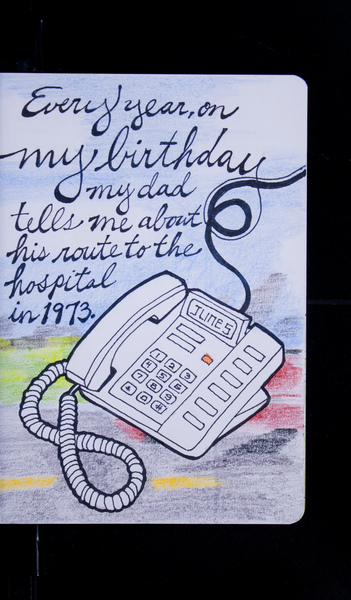 Every year, on
my birthday
my dad
tells me about
his route to the
hospital
in 1973.
JUNE 5
1 2 3
4 5 6
7 8 9
* 0 #